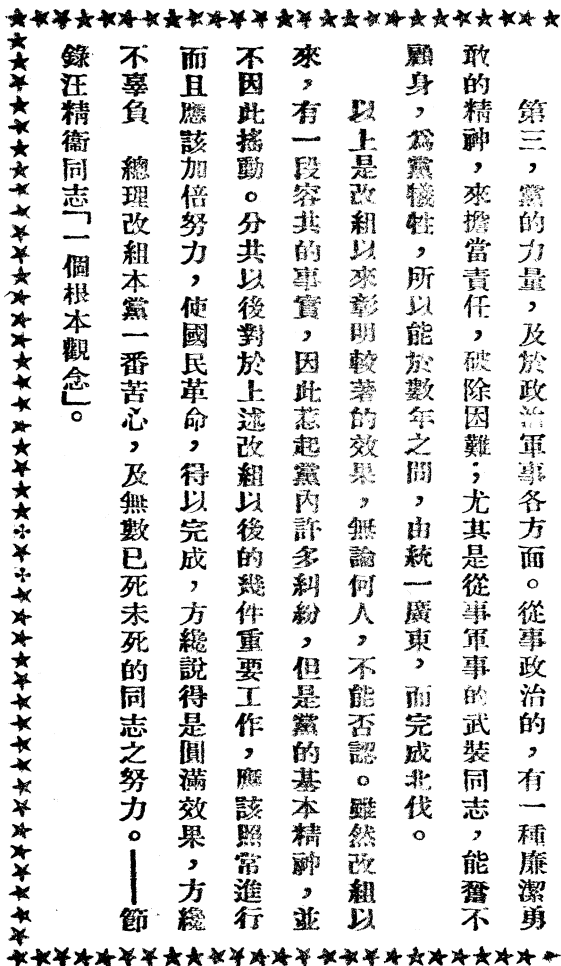 第三，黨的力量，及於政治軍事各方面。從事政治的，有一種廉潔勇
敢的精神，來擔當責任，破除困難；尤其是從事軍事的武裝同志，能奮不
顧身，爲黨犧牲，所以能於數年之間，由統一廣東，而完成北伐。
以上是改組以來彰明較著的效果，無論何人，不能否認。雖然改組以
來，有一段容共的事實，因此惹起黨內許多糾紛，但是黨的基本精神，並
不因此搖動。分共以後對於上述改組以後的幾件重要工作，應該照常進行
而且應該加倍努力，使國民革命，得以完成，方纔說得是圓滿效果，方纔
不辜負　總理改組本黨一番苦心，及無數已死未死的同志之努力。——節
錄汪精衛同志「一個根本觀念」。